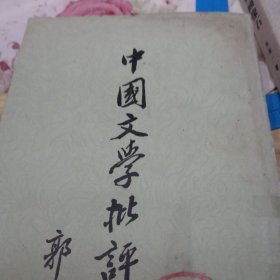 中國文學批評
郭